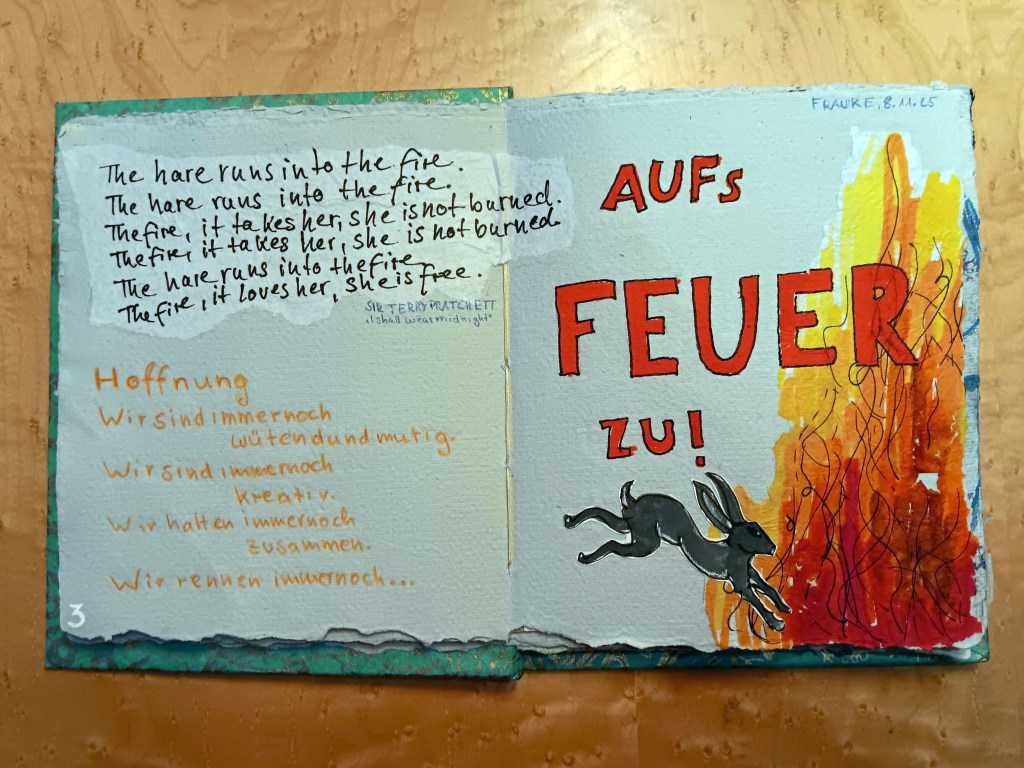 The hare runs into the fire.
The hare runs into the fire.
The fire, it takes her, she is not burned.
The fire, it takes her, she is not burned
The hare runs into the fire
The fire, it loves her, she is free.
SIR TERRY PRATCHETT
„I shall wear midnight"
Hoffnung
Wir sind immer noch
wütend und mutig.
Wir sind immer noch
kreativ.
Wir halten immer noch
zusammen.
Wir rennen immer noch...
3
FRAUKE, 8.11.25
AUFs
FEUER
ZU!